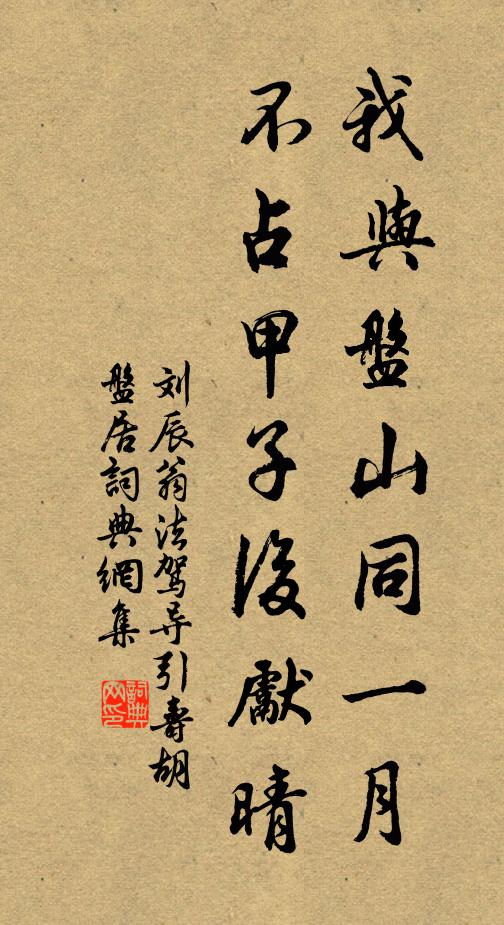 我與盤山同一月
不占甲子復獻晴
刘辰翁法驾导引壽胡
盤居詞典網集
詞典
网印